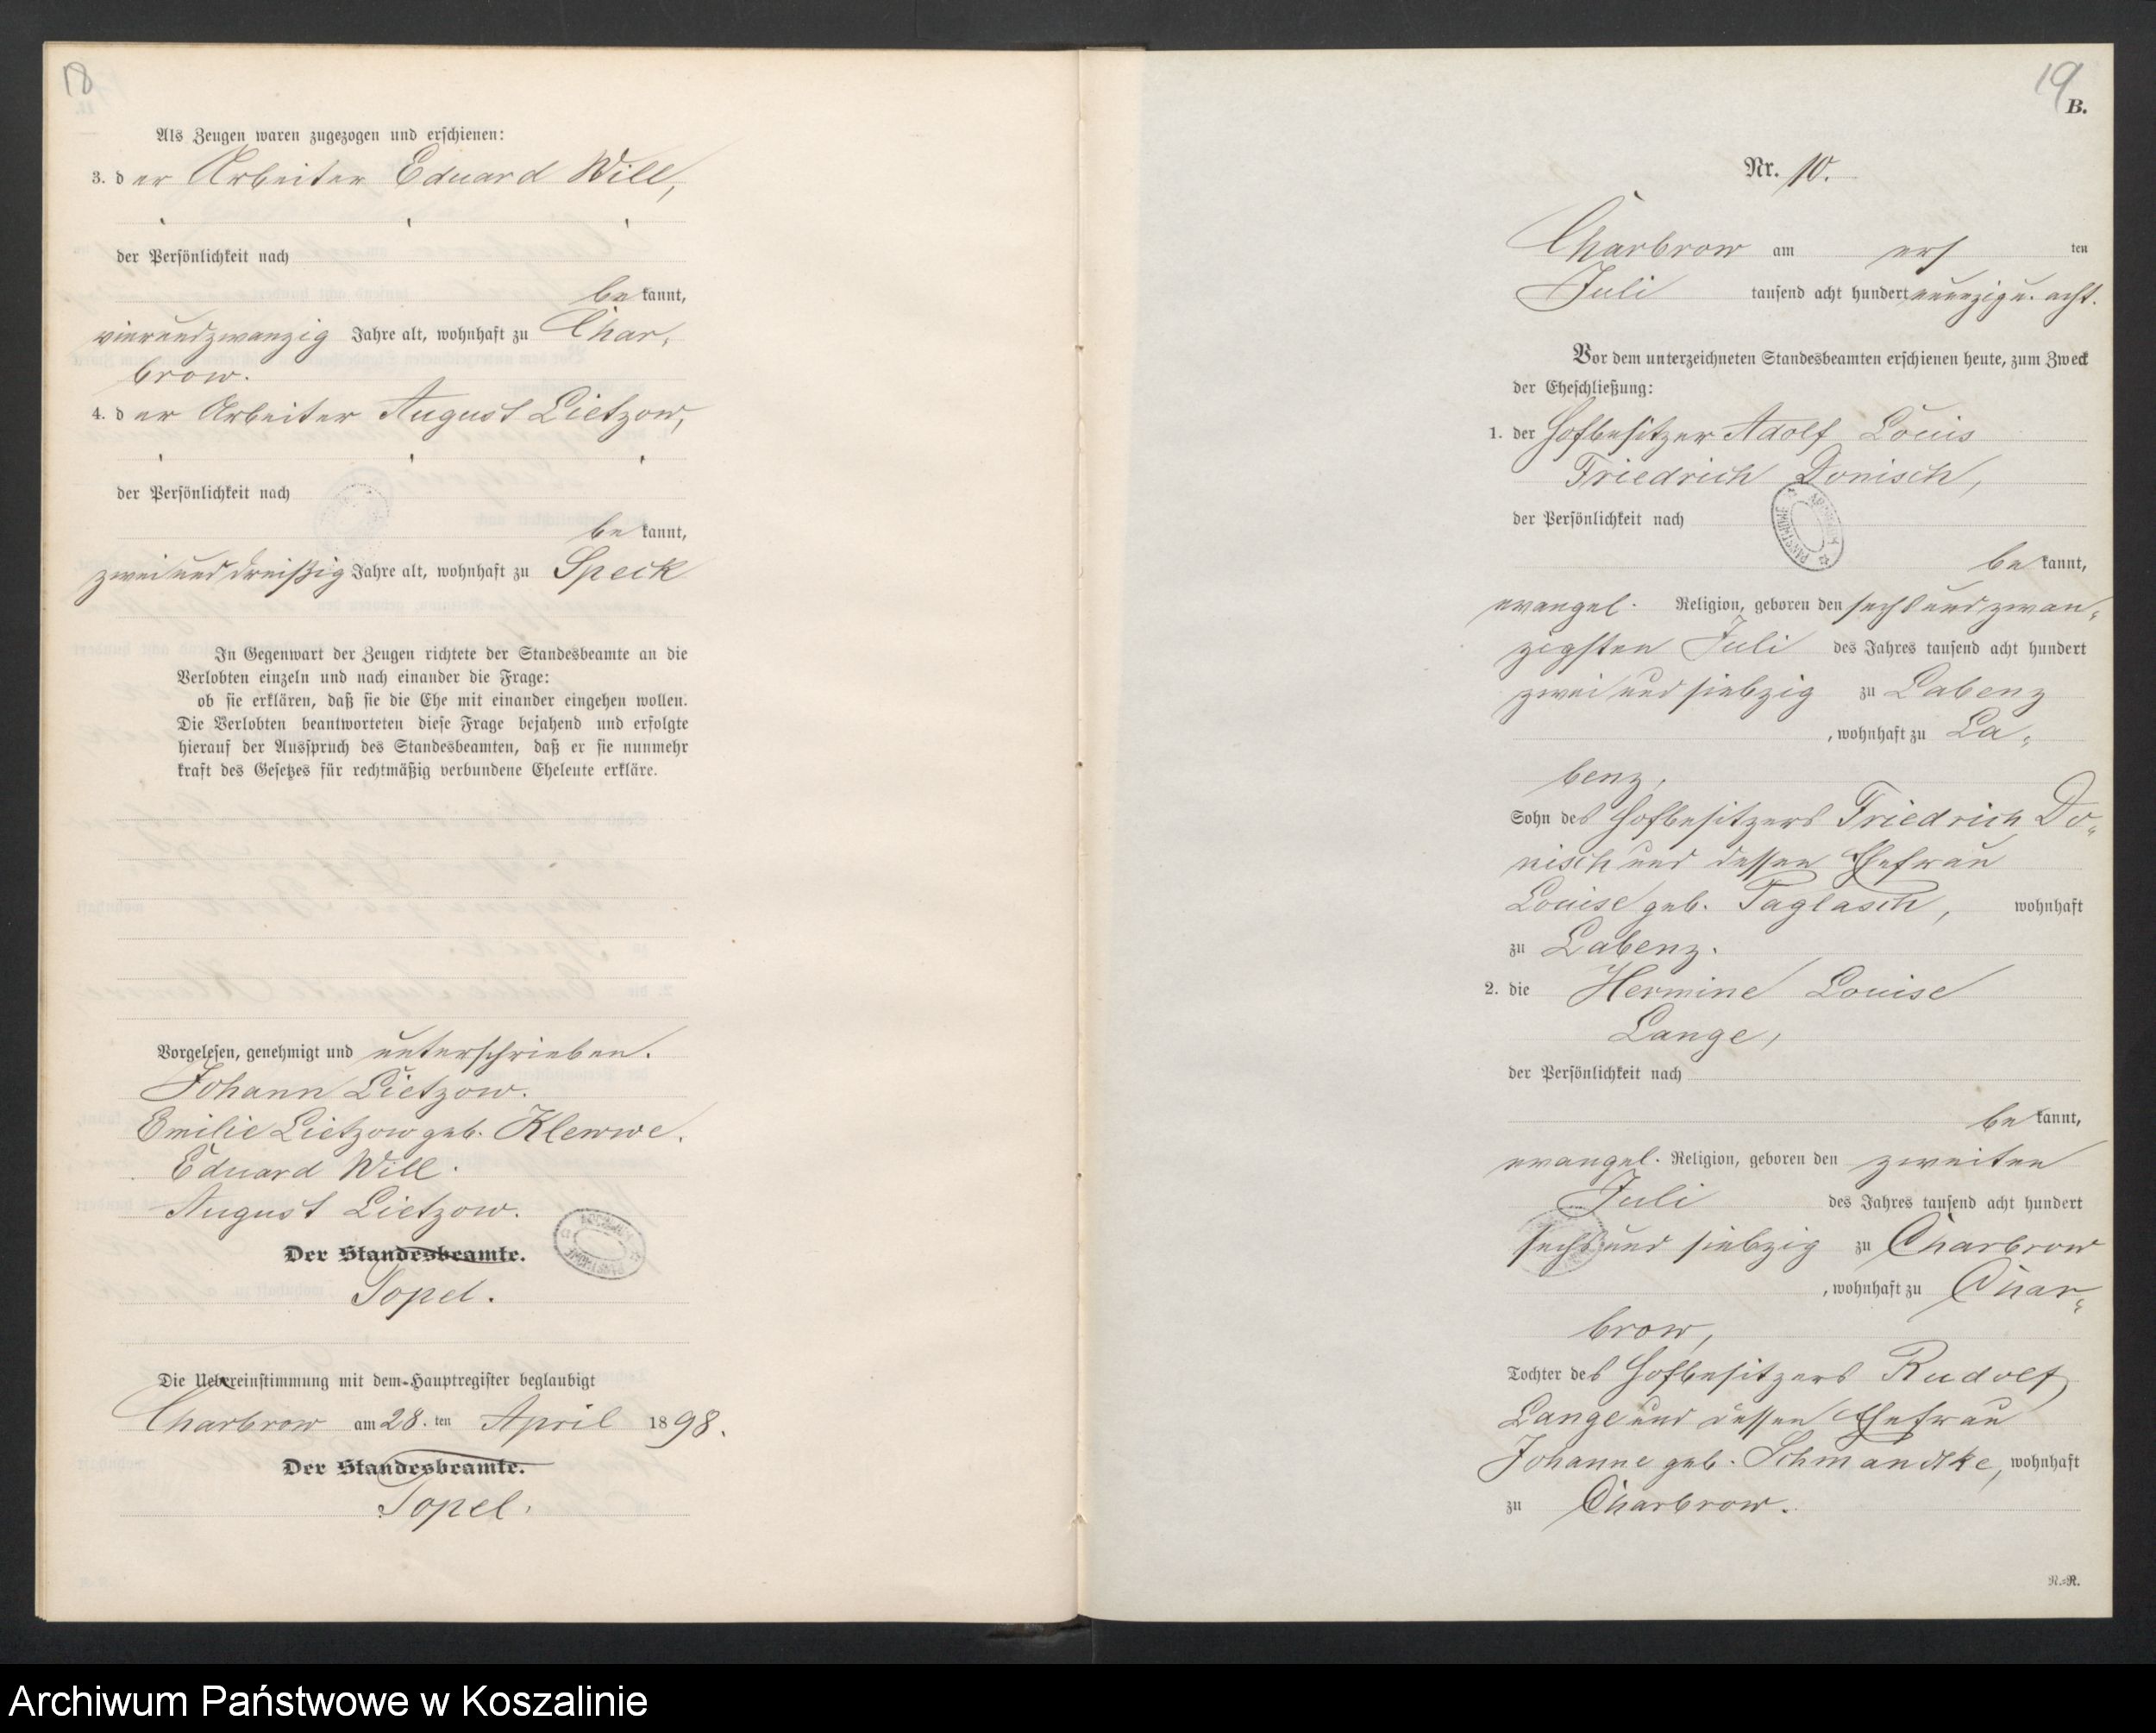 18
Als Zeugen waren zugezogen und erschienen:
3. der Arbeiter Eduard Will,
der Persönlichkeit nach
bekannt,
vierundzwanzig Jahre alt, wohnhaft zu Char-
brow.
4. der Arbeiter August Lietzow,
der Persönlichkeit nach
bekannt,
zweiunddreißig Jahre alt, wohnhaft zu Speck
In Gegenwart der Zeugen richtete der Standesbeamte an die
Verlobten einzeln und nach einander die Frage:
ob sie erklären, daß sie die Ehe mit einander eingehen wollen.
Die Verlobten beantworteten diese Frage bejahend und erfolgte
hierauf der Ausspruch des Standesbeamten, daß er sie nunmehr
kraft des Gesetzes für rechtmäßig verbundene Eheleute erkläre.
Vorgelesen, genehmigt und unterschrieben.
Johann Lietzow.
Emilie Lietzow geb. Klewwe.
Eduard Will.
August Lietzow.
Der Standesbeamte.
Topel.
Die Uebereinstimmung mit dem Hauptregister beglaubigt
Charbrow am 28.ten April 1898.
Der Standesbeamte.
Topel.
19
B.
Nr. 10.
Charbrow am ersten
Juli tausend acht hundert neunzig u. acht.
Vor dem unterzeichneten Standesbeamten erschienen heute, zum Zweck
der Eheschließung:
1. der Hofbesitzer Adolf Louis
Friedrich Donisch,
der Persönlichkeit nach
bekannt,
evangel. Religion, geboren den sechsundzwan-
zigsten Juli des Jahres tausend acht hundert
zwei und siebzig zu Labenz
, wohnhaft zu La-
benz,
Sohn des Hofbesitzers Friedrich Do-
nisch und dessen Ehefrau
Louise geb. Taglasch, wohnhaft
zu Labenz.
2. die Hermine Louise
Lange,
der Persönlichkeit nach
bekannt,
evangel. Religion, geboren den zweiten
Juli des Jahres tausend acht hundert
sechs und siebzig zu Charbrow
, wohnhaft zu Char-
brow,
Tochter des Hofbesitzers Rudolf
Lange und dessen Ehefrau
Johanne geb. Schmandtke, wohnhaft
zu Charbrow.
R.-R.
Archiwum Państwowe w Koszalinie